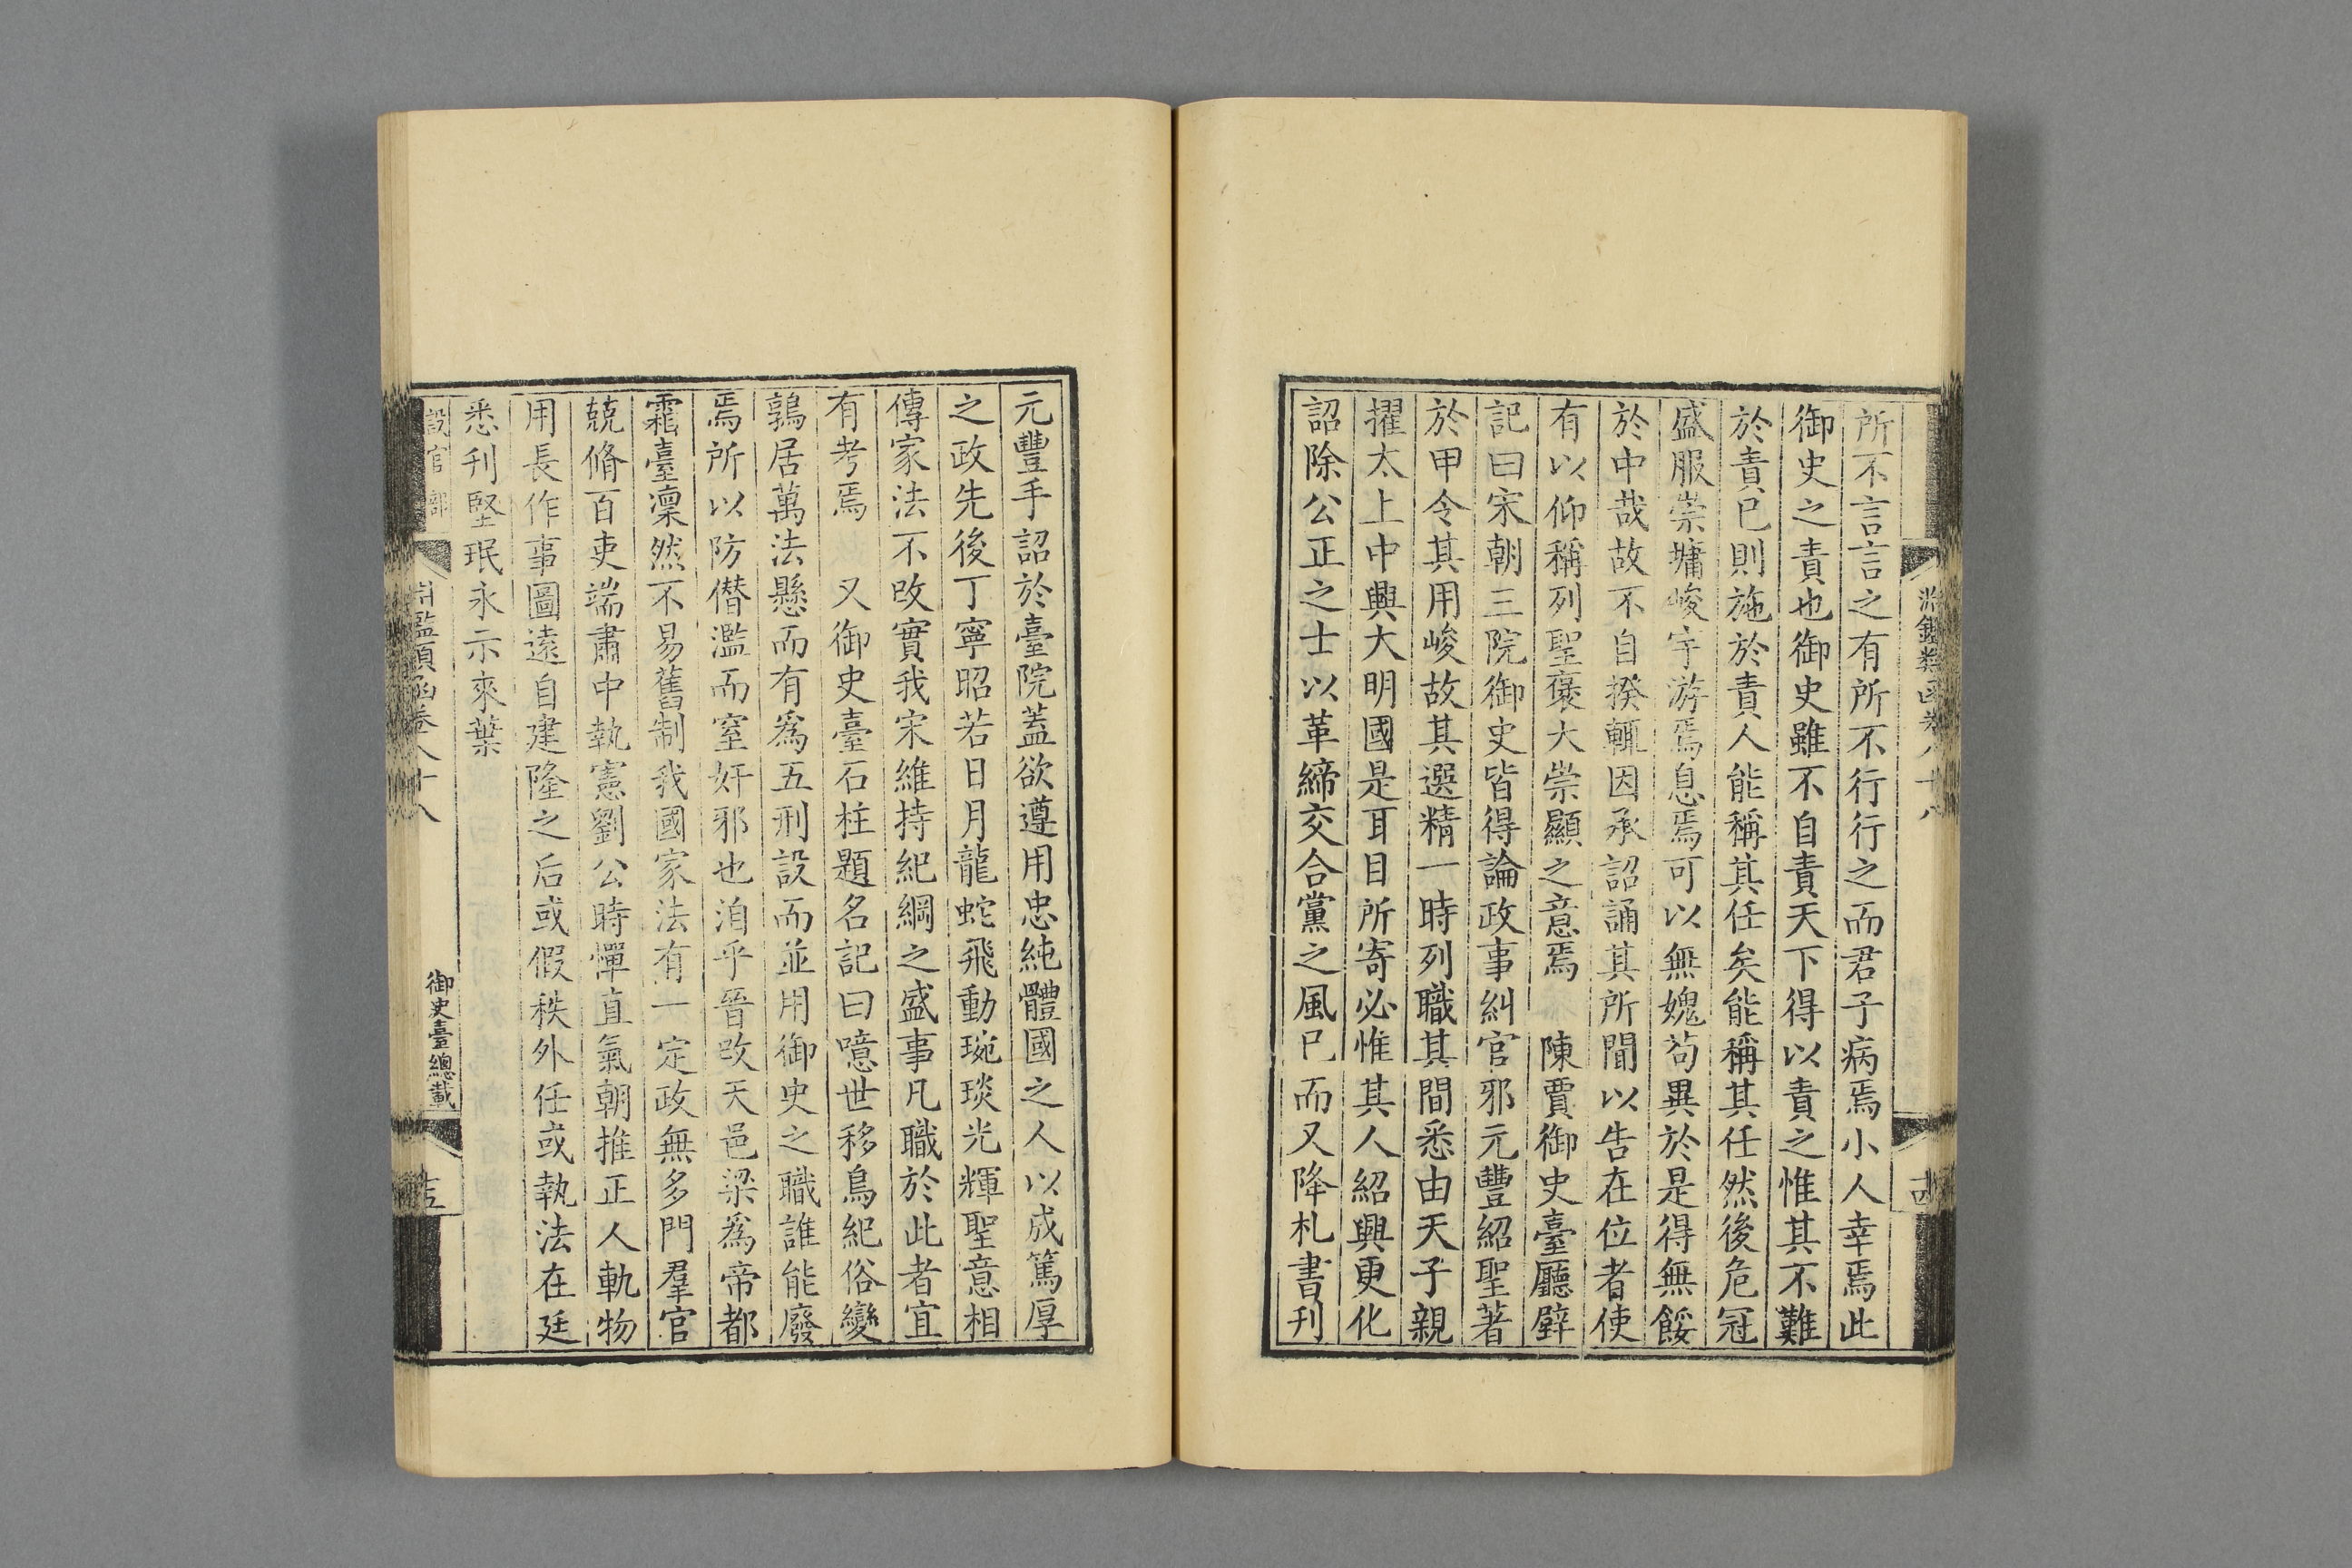 淵鑑類函卷八十八
所不言言之有所不行行之而君子病焉小人幸焉此
御史之責也御史雖不自責天下得以責之惟其不難
於責已則施於責人能稱其任矣能稱其任然後危冠
盛服崇墉峻宇游焉息焉可以無媿茍異於是得無餒
於中哉故不自揆輒因承詔誦其所聞以告在位者使
有以仰稱列聖褒大崇顯之意焉 陳賈御史臺廳壁
記曰宋朝三院御史皆得論政事糾官邪元豐紹聖著
於甲令其用峻故其選精一時列職其間悉由天子親
擢太上中興大明國是耳目所寄必惟其人紹興更化
詔除公正之士以革締交合黨之風已而又降札書刊
元豐手詔於臺院蓋欲遵用忠純體國之人以成篤厚
之政先後丁寧昭若日月龍蛇飛動琬琰光輝聖意相
傳家法不改實我宋維持紀綱之盛事凡職於此者宜
有考焉 又御史臺石柱題名記曰噫世移鳥紀俗變
鶉居萬法懸而有爲五刑設而並用御史之職誰能廢
焉所以防僭濫而窒奸邪也洎乎晉改天邑梁爲帝都
霜臺凜然不易舊制我國家法有一定政無多門羣官
兢脩百吏端肅中執憲劉公時憚直氣朝推正人軌物
用長作事圖遠自建隆之后或假秩外任或執法在廷
悉刊堅珉永示來葉
設官部
淵鑑類函卷八十八
御史臺總載